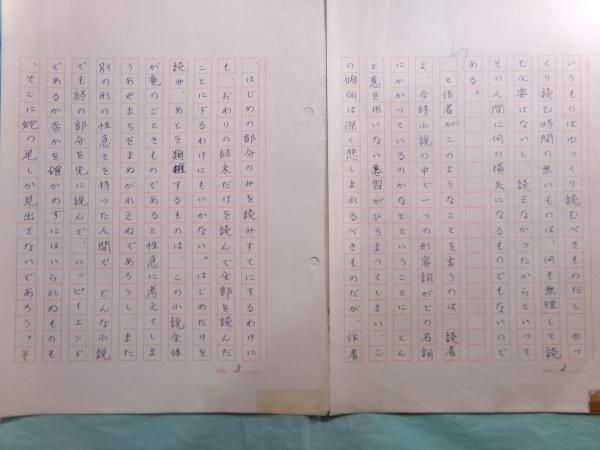 いうものはゆっくり読むべきものだし、ゆっ
くり読む時間の無いものは、何も無理して読
む必要はないし、読まなかったからといって
その人間に何の損失になるものでもないので
ある。
と作者がこのようなことを言うのは、読者
よ、今時小説の中で一つの形容詞がどの名詞
にかかっているのかなどということに、とん
と意を用いない悪習がひろまってしまい、こ
の傾向は深く悲しまれるべきものだが、作者
No. 2
、はじめの部分のみを読みすてにするわけに
も、おわりの結末だけを読んで全部を読んだ
ことにするわけにもいかない。はじめだけを
読み、あとを類推するものは、この小説全体
が竜のごときものであると性急に考えてしま
うあやまちをまぬがれえぬであろうし、また
別の形の性急さを持った人間で、どんな小説
でも終の部分を先に読んで、ハッピイエンド
であるか否かを確かめずにはいられぬものも
、そこに蛇の尾しか見出さないであろう。そ
No. 3